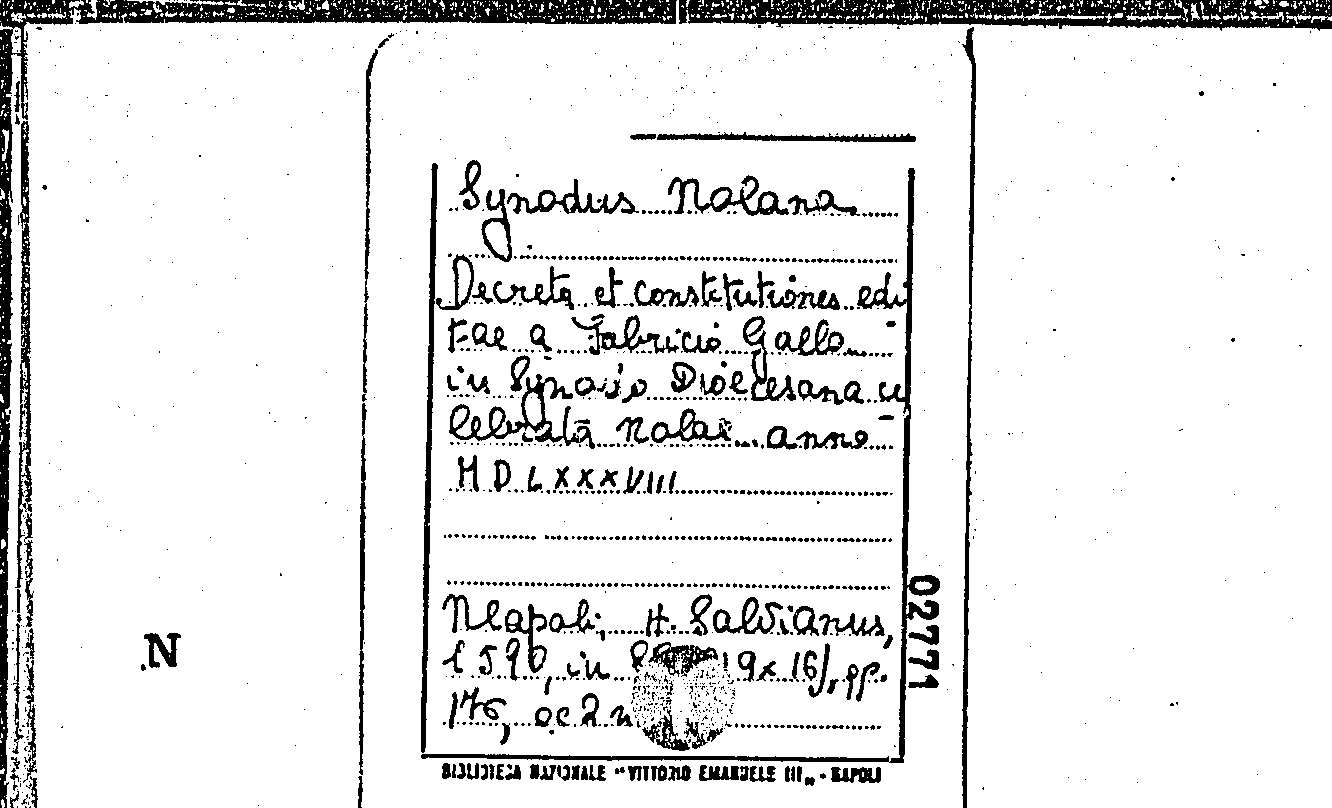 Synodus Nolana
Decreta et constitutiones edi
tae a Fabricio Gallo
in Synodo Dioecesana ce
lebrata Nolae anno
MDLXXXVIII
Neapoli, H. Salvianus,
1590, in 19x16/, pp.
176, oc 2 n
BIBLIOTECA NAZIONALE "VITTORIO EMANUELE III" - NAPOLI
02771
N